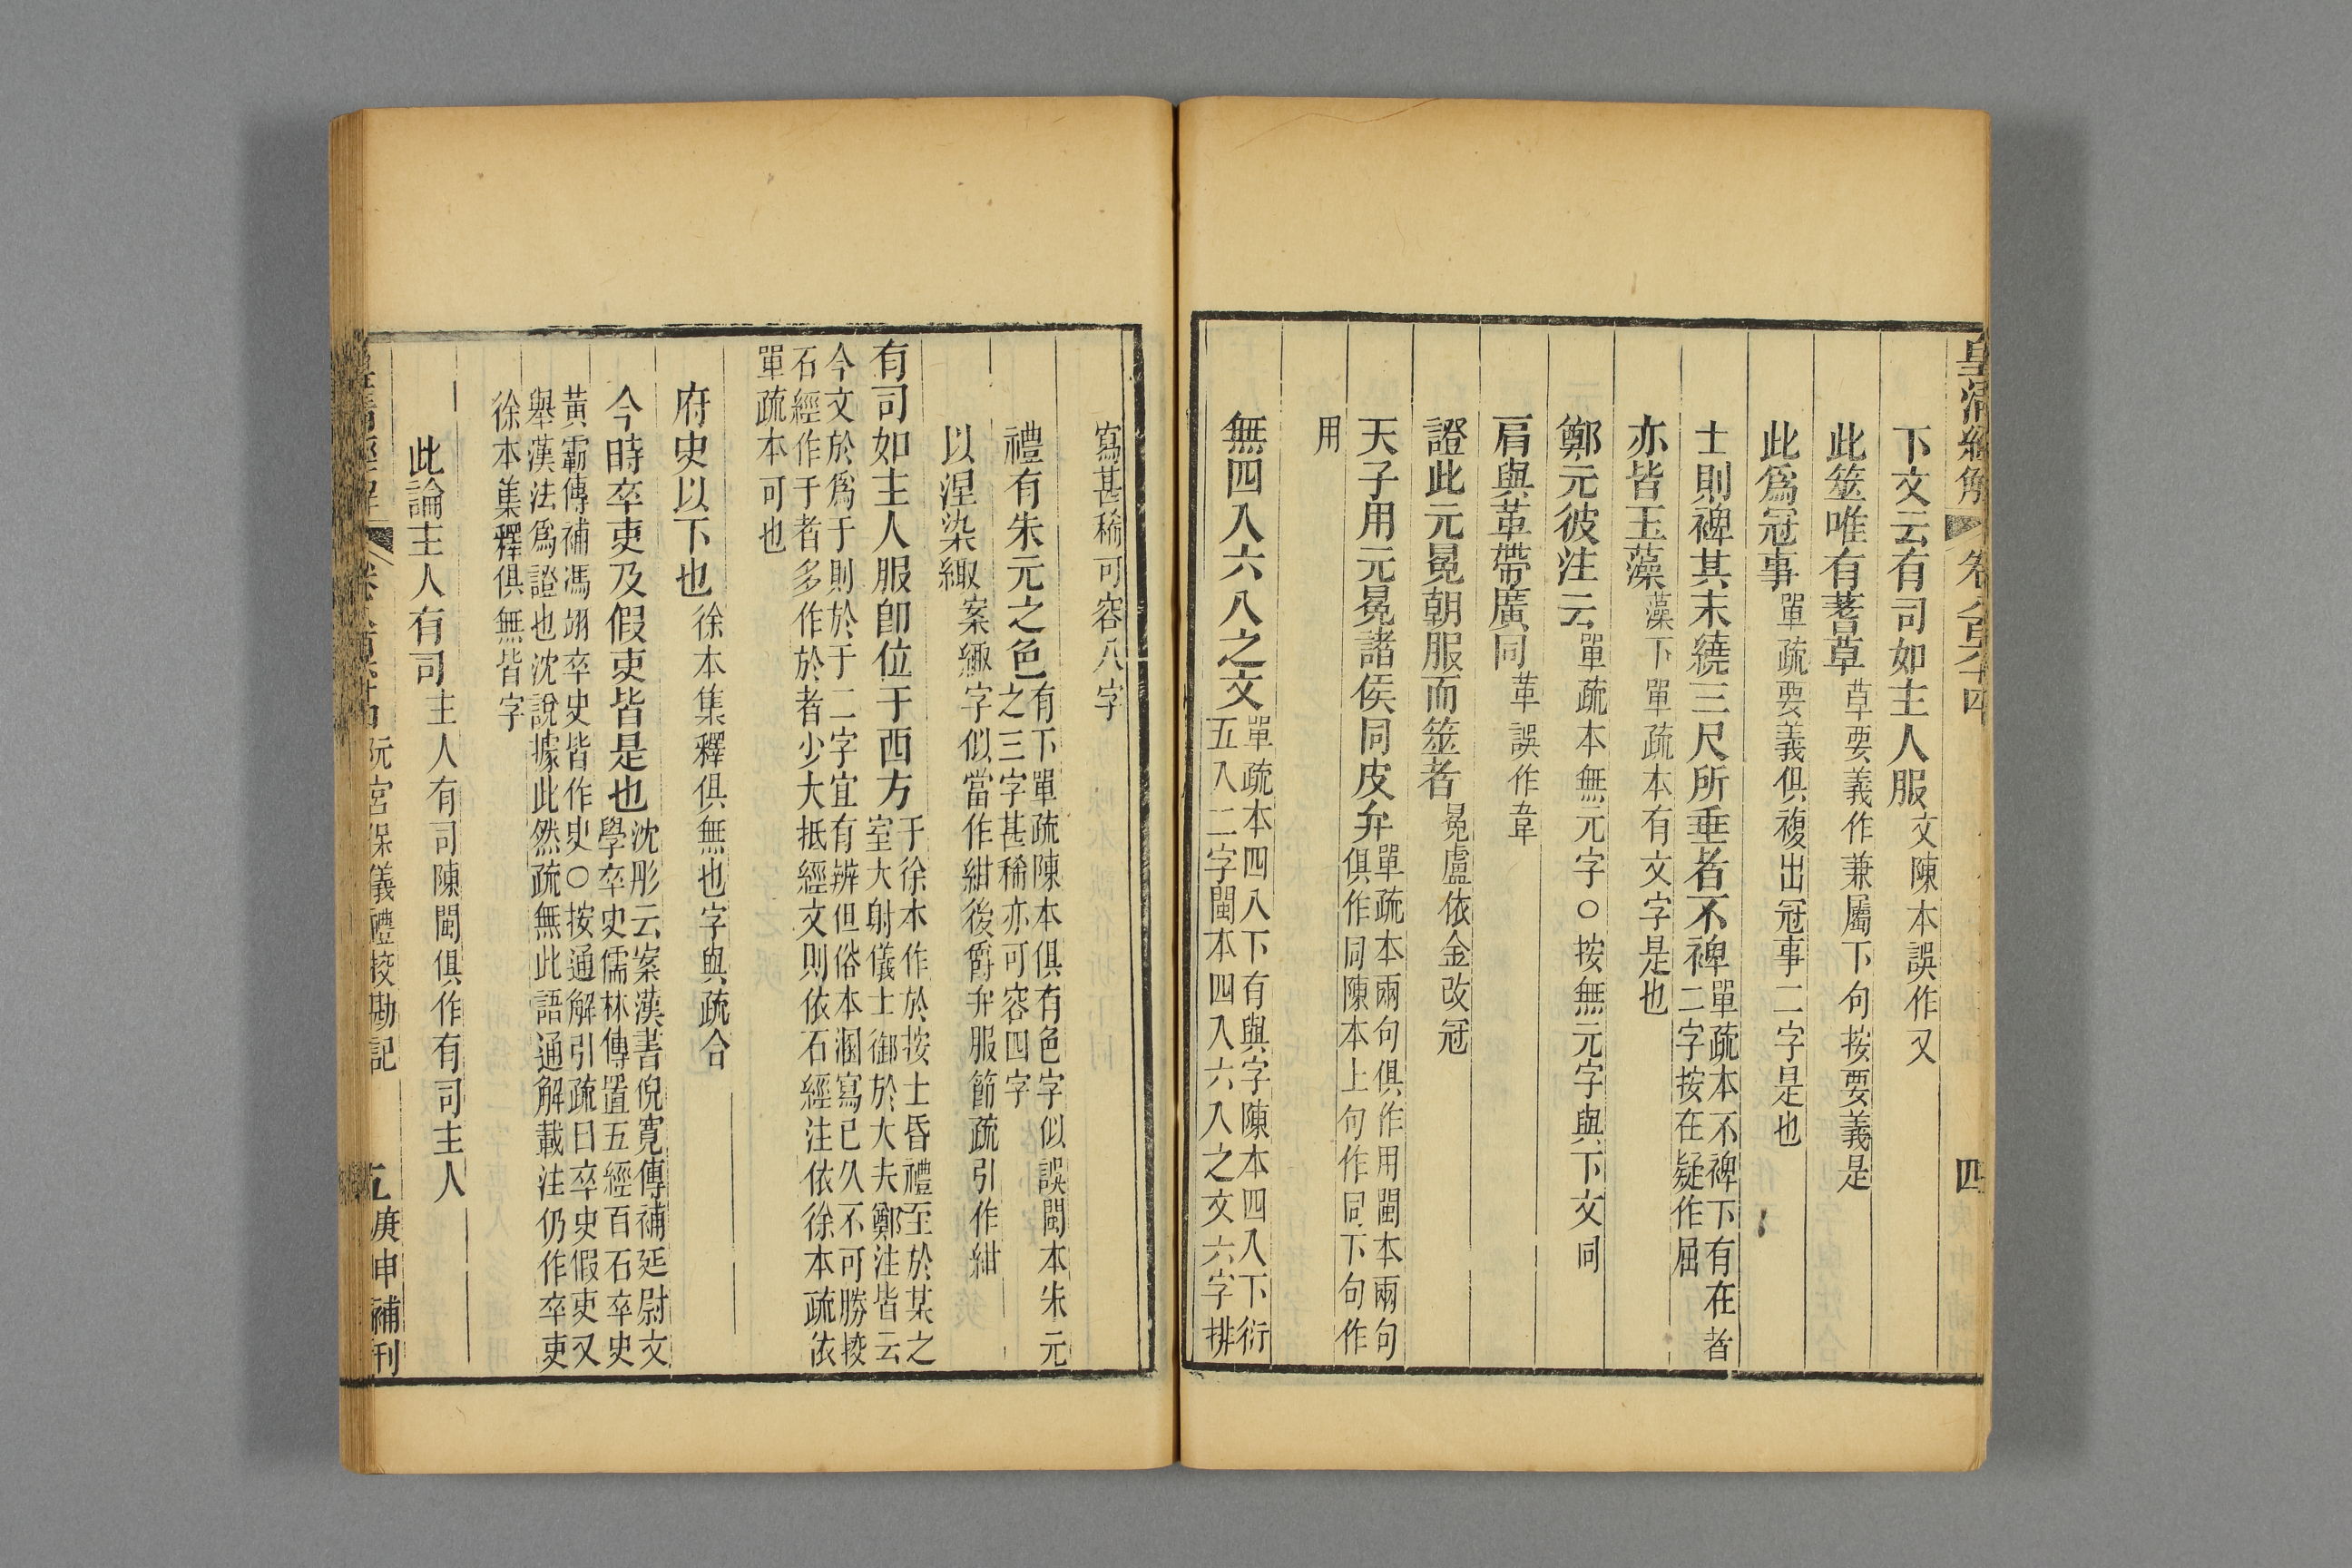 皇清經解 卷八百六十四 四
下文云有司如主人服 文陳本誤作又
此筮唯有蓍草 草要義作兼屬下句按要義是
此爲冠事 單疏要義俱複出冠事二字是也
士則裨其末繞三尺所垂者不裨 單疏本不裨下有在者
二字按在疑作屈
亦皆玉藻 藻下單疏本有文字是也
鄭元彼注云 單疏本無元字○按無元字與下文同
肩與革帶廣同 革誤作韋
證此元冕朝服而筮者 冕盧依金改冠
天子用元冕諸侯同皮弁 單疏本兩句俱作用閩本兩句
俱作同陳本上句作同下句作
用
無四入六入之文 單疏本四入下有與字陳本四入下衍
五入二字閩本四入六入之文六字排
寫甚稀可容八字
禮有朱元之色 有下單疏陳本俱有色字似誤閩本朱元
之三字甚稀亦可容四字
以涅染緅 案緅字似當作紺後爵弁服節疏引作紺
有司如主人服卽位于西方 于徐本作於按士昏禮至於某之
室大射儀士御於大夫鄭注皆云
今文於爲于則於于二字宜有辨但俗本溷寫已久不可勝挍
石經作于者多作於者少大抵經文則依石經注依徐本疏依
單疏本可也
府史以下也 徐本集釋俱無也字與疏合
今時卒吏及假吏皆是也 沈彤云案漢書倪寬傳補廷尉文
學卒史儒林傳置五經百石卒史
黃霸傳補馮翊卒史皆作史○按通解引疏曰卒史假吏又
舉漢法爲證也沈說據此然疏無此語通解載注仍作卒吏
徐本集釋俱無皆字
此論主人有司 主人有司陳閩俱作有司主人
皇清經解 阮宮保儀禮挍勘記 五 庚申補刊